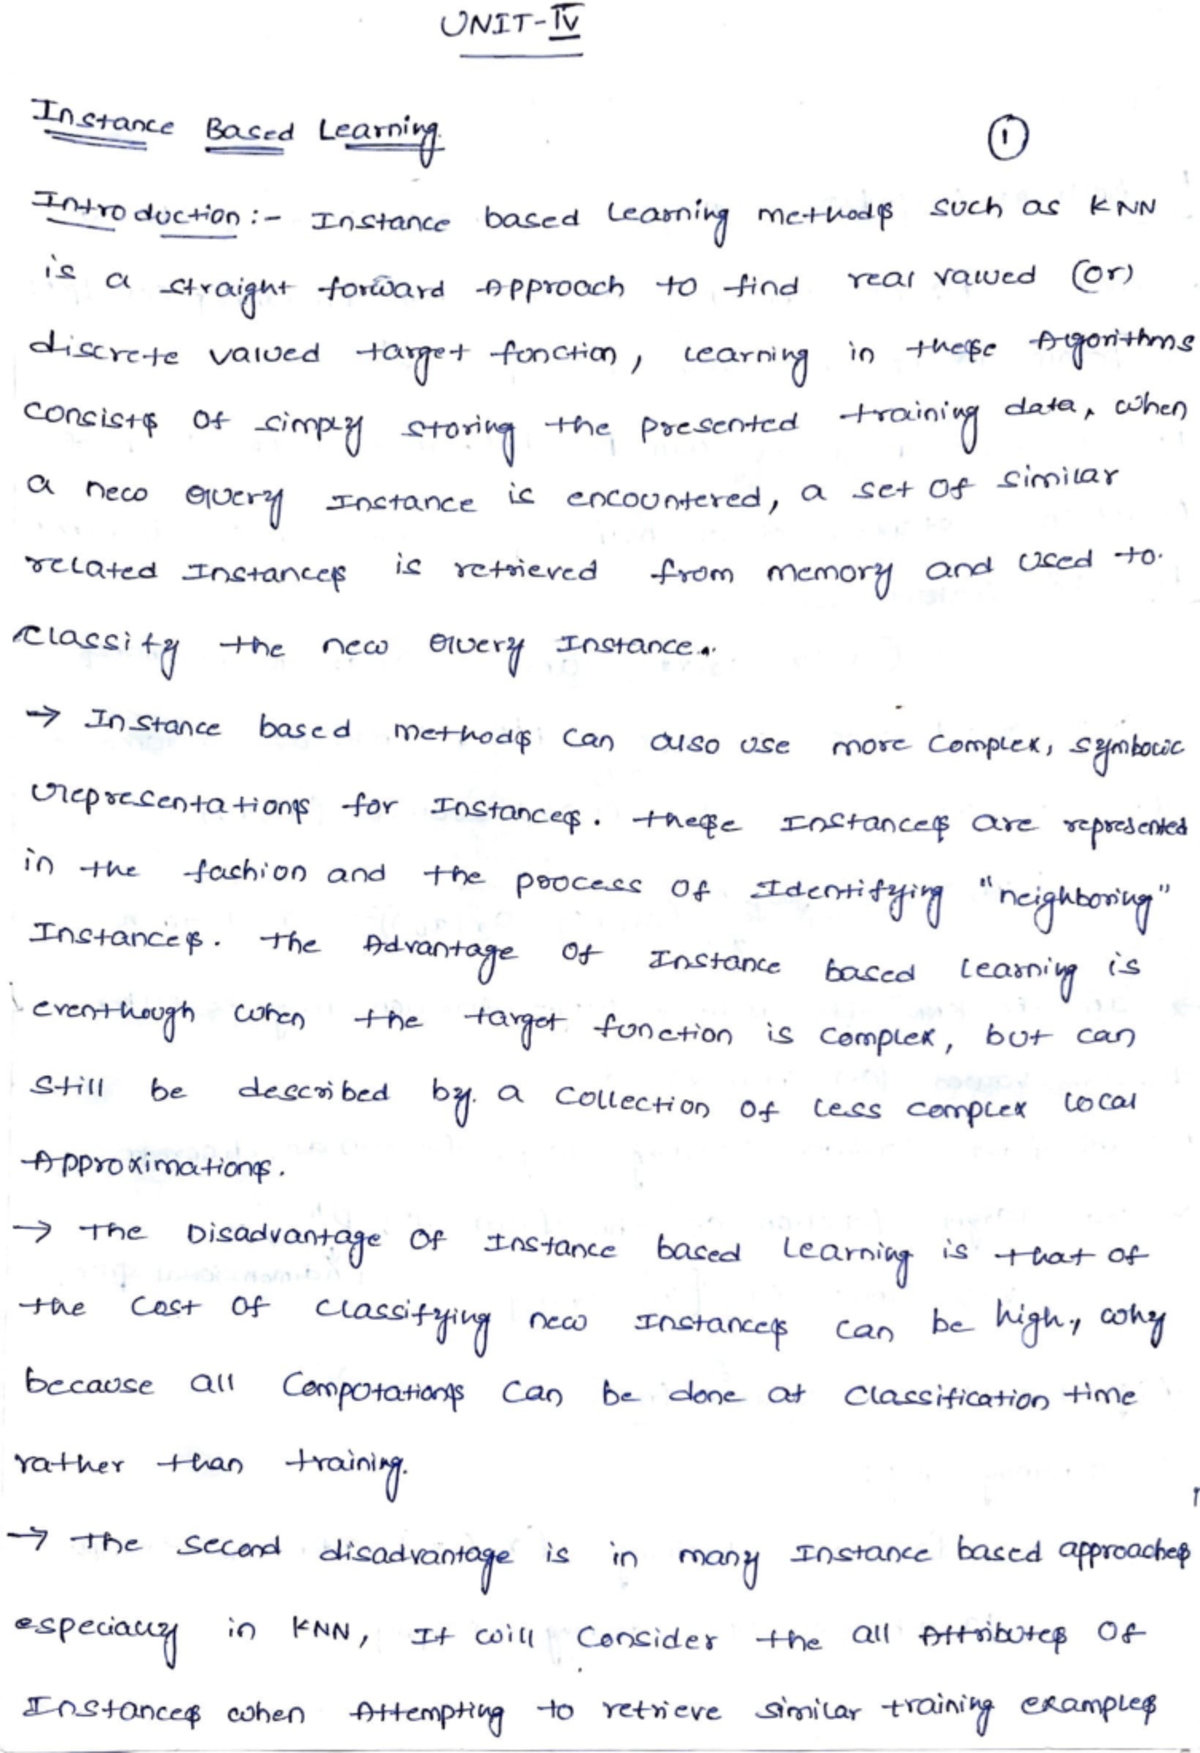 UNIT-IV
Instance Based Learning
1
Introduction :- Instance based learning methods such as KNN
is a straight forward Approach to find real valued (or)
discrete valued target function, learning in these Algorithms
consists of simply storing the presented training data, when
a new Query Instance is encountered, a set of similar
related Instances is retrieved from memory and used to
classify the new Query Instance.
→ Instance based methods can also use more complex, symbolic
representations for Instances. these Instances are represented
in the fashion and the process of Identifying "neighboring"
Instances. The Advantage of Instance based learning is
eventhough when the target function is complex, but can
still be described by a collection of less complex local
Approximations.
→ The Disadvantage of Instance based learning is that of
the cost of classifying new Instances can be high, why
because all Computations can be done at classification time
rather than training.
→ The second disadvantage is in many Instance based approaches
especially in KNN, It will consider the all Attributes of
Instances when Attempting to retrieve similar training examples